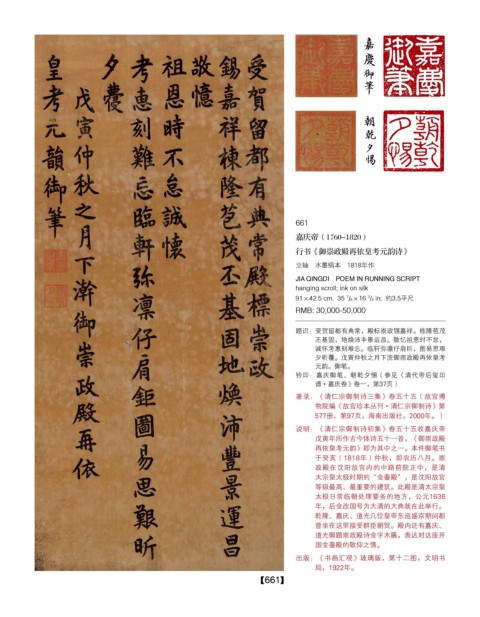 受賀留都有典常殿標崇政
錫嘉祥棟隆苞茂丕基固地煥沛豐景運昌
敬憶
祖恩時不怠誠懷
考惠刻難忘臨軒弥凛仔肩鉅圖易思艱昕
夕虁
戊寅仲秋之月下澣御崇政殿再依
皇考元韻御筆
嘉慶御筆
嘉慶御筆
嘉慶御筆
朝乾夕惕
朝乾夕惕
朝乾夕惕
661
嘉庆帝（1760-1820）
行书《御崇政殿再依皇考元韵诗》
立轴 水墨绢本 1818年作
JIA QINGDI POEM IN RUNNING SCRIPT
hanging scroll; ink on silk
91×42.5 cm. 35 7/8×16 3/4 in. 约3.5平尺
RMB: 30,000-50,000
题识：受贺留都有典常，殿标崇政锡嘉祥。栋隆苞茂
丕基固，地焕沛丰景运昌。敬忆祖恩时不怠，
诚怀考惠刻难忘。临轩弥凛仔肩巨，图易思艰
夕昕虁。戊寅仲秋之月下浣御崇政殿再依皇考
元韵。御笔。
钤印：嘉庆御笔、朝乾夕惕（参见《清代帝后玺印
谱·嘉庆卷》卷一，第37页）
著录：《清仁宗御制诗三集》卷五十五（故宫博
物院编《故宫珍本丛刊·清仁宗御制诗》第
577册，第97页，海南出版社，2000年。）
说明：《清仁宗御制诗初集》卷五十五收嘉庆帝
戊寅年所作古今体诗五十一首，《御崇政殿
再依皇考元韵》即为其中之一。本件御笔书
于癸亥（1818年）仲秋，即农历八月。崇
政殿在沈阳故宫内的中路前院正中，是清
太宗皇太极时期的“金銮殿”，是沈阳故宫
等级最高、最重要的建筑。此殿是清太宗皇
太极日常临朝处理要务的地方，公元1636
年，后金改国号为大清的大典就在此举行。
乾隆、嘉庆、道光几位皇帝东巡盛京期间都
曾坐在这里接受群臣朝贺。殿内还有嘉庆、
道光御题崇政殿诗金字木匾，表达对这座开
国金銮殿的敬仰之情。
出版：《书画汇观》玻璃版，第十二图，文明书
局，1922年。
【661】